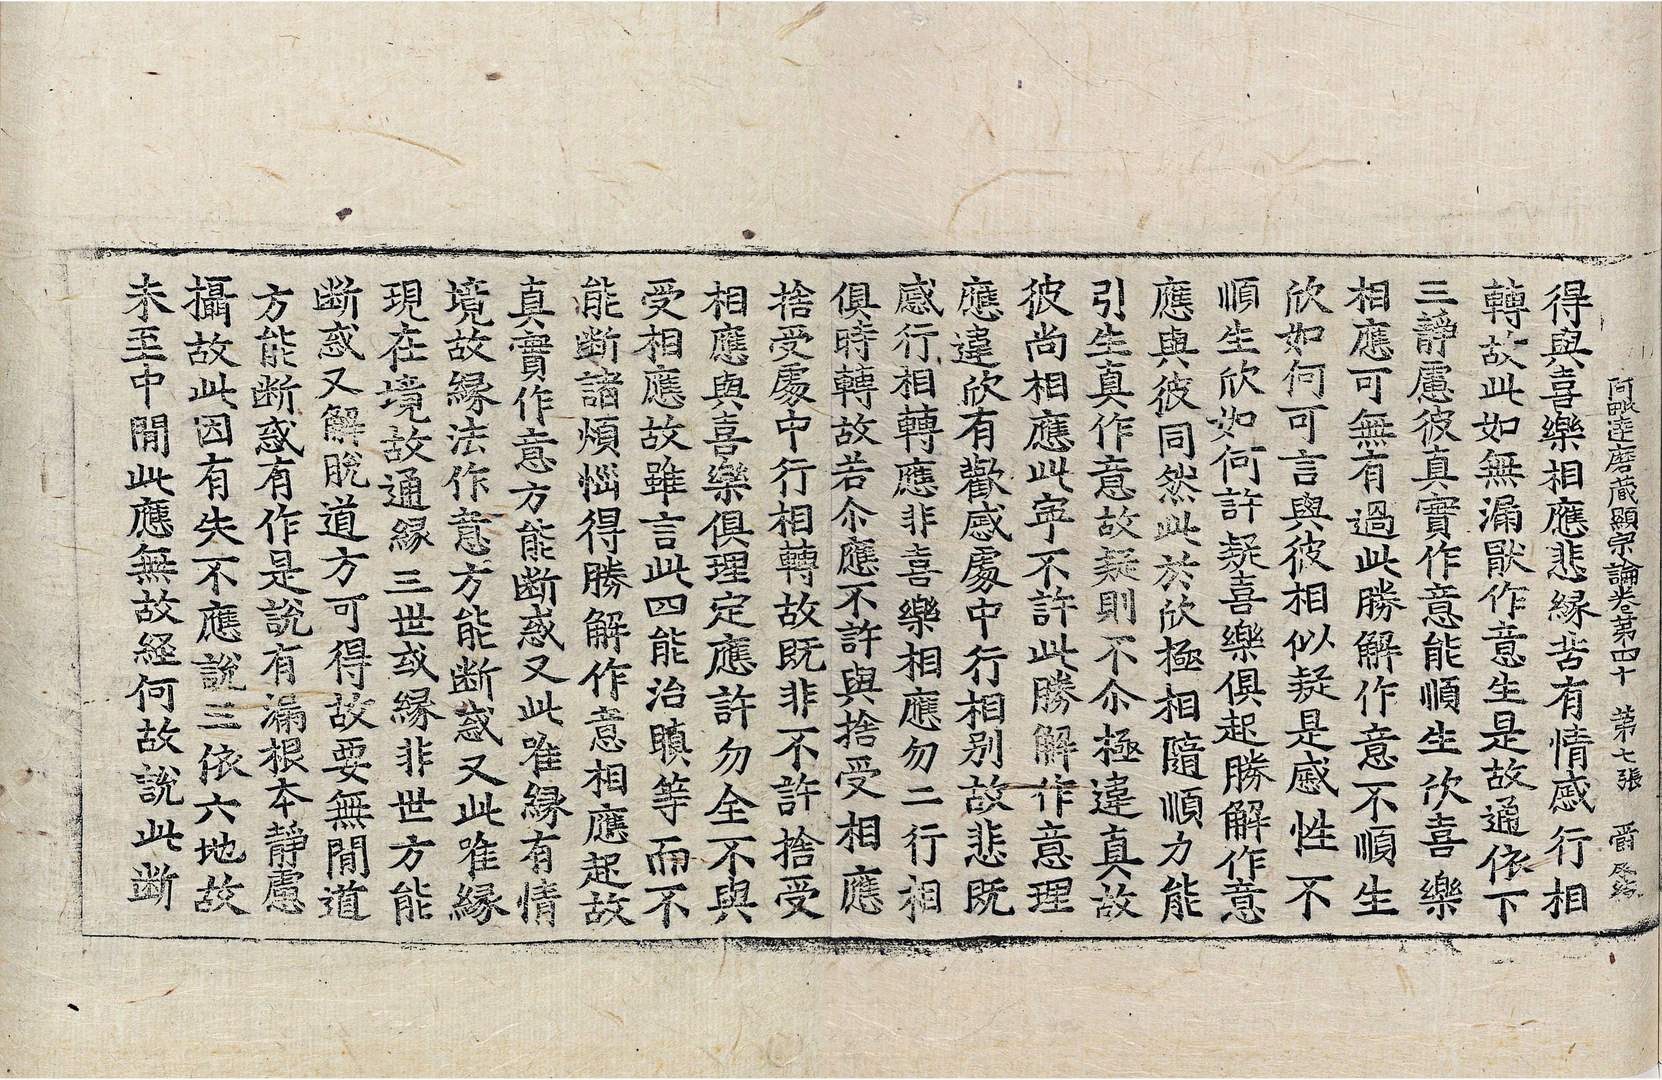 阿毗達磨藏顯宗論卷第四十 第七張 爵
得與喜樂相應悲緣苦有情慼行相
轉故此如無漏猒作意生是故通依下
三靜慮彼真實作意能順生欣喜樂
相應可無有過此勝解作意不順生
欣如何可言與彼相似疑是慼性不
順生欣如何許疑喜樂俱起勝解作意
應與彼同然此於欣極相隨順力能
引生真作意故疑則不尒極違真故
彼尚相應此寧不許此勝解作意理
應違欣有歡慼處中行相別故悲既
慼行相轉應非喜樂相應勿二行相
俱時轉故若尒應不許與捨受相應
捨受處中行相轉故既非不許捨受
相應與喜樂俱理定應許勿全不與
受相應故雖言此四能治瞋等而不
能斷諸煩惱得勝解作意相應起故
真實作意方能斷惑又此唯緣有情
境故緣法作意方能斷惑又此唯緣
現在境故通緣三世或緣非世方能
斷惑又解脫道方可得故要無間道
方能斷惑有作是說有漏根本靜慮
攝故此因有失不應說三依六地故
未至中間此應無故經何故說此斷